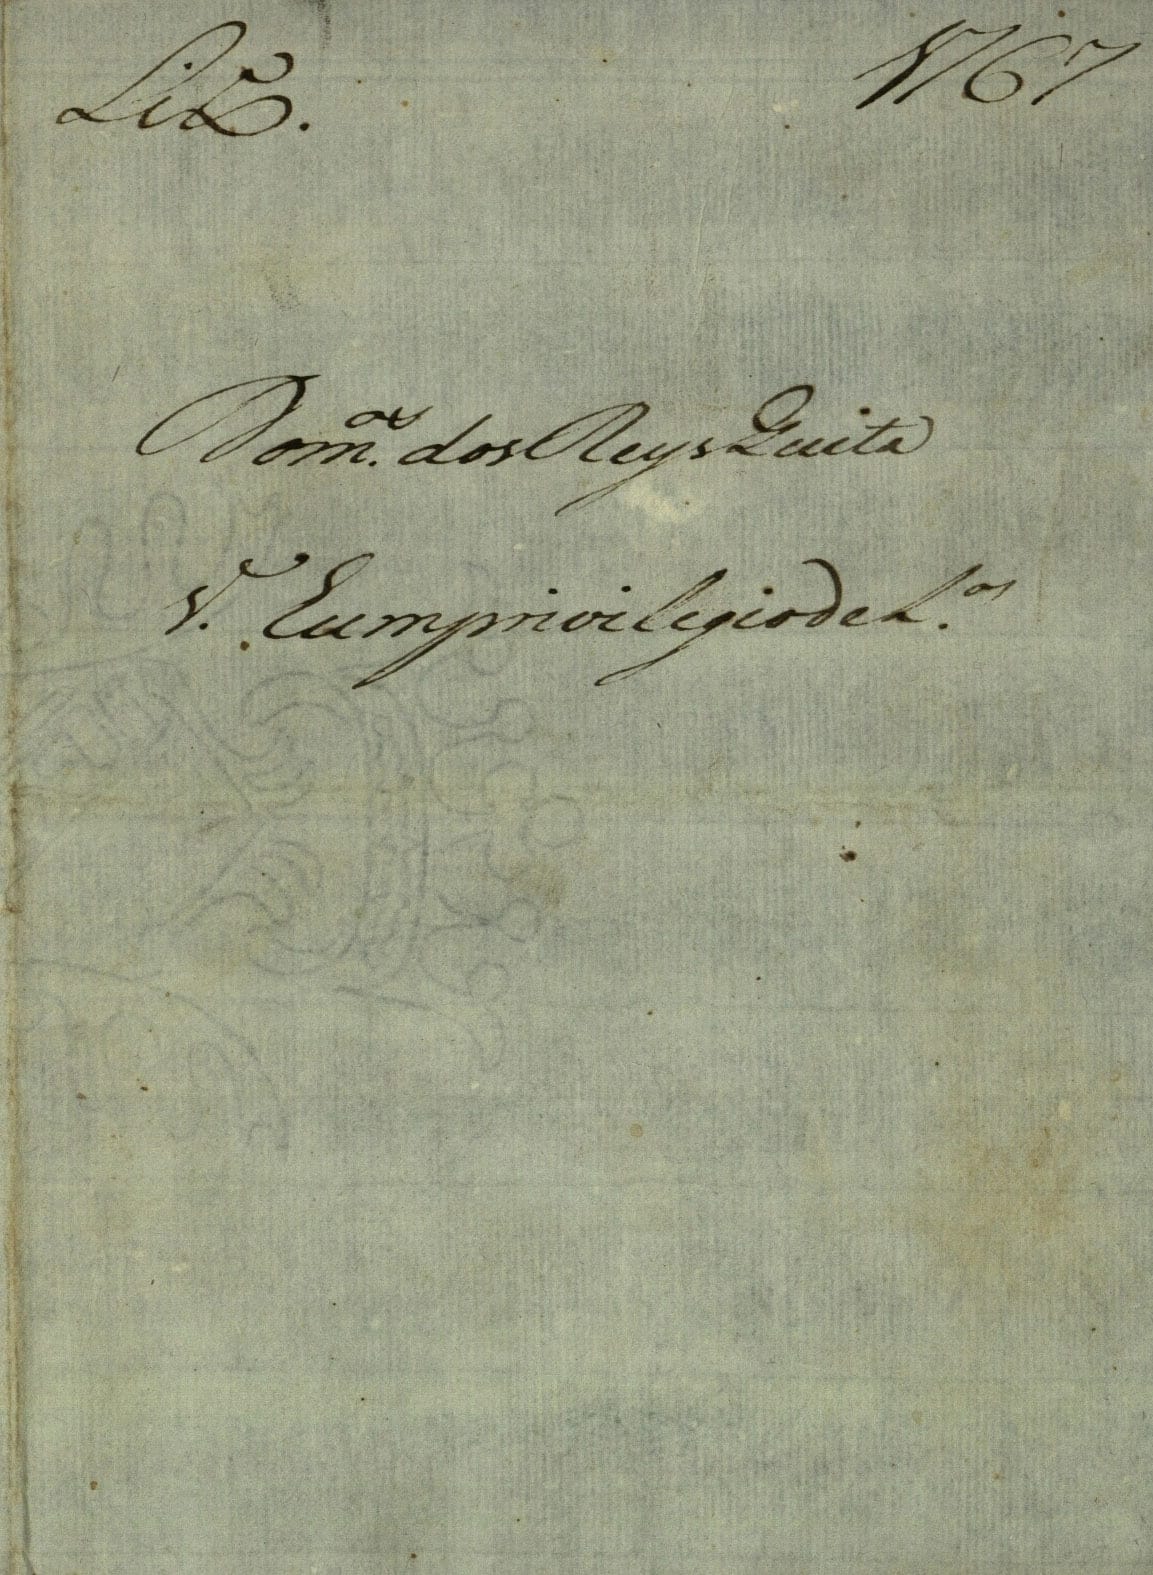 Lix.ª 1767
Dom.os dos Reys Quita
S. Eumprivilegio de L.os